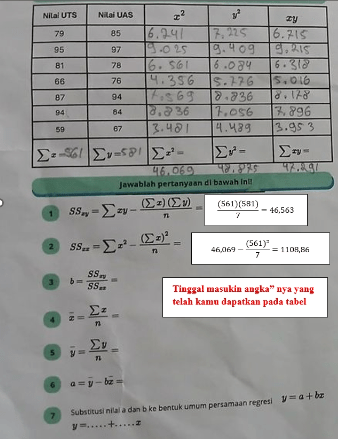 Nilai UTS Nilai UAS x² y² xy
79 85 6.241 7.225 6.715
95 97 9.025 9.409 9.215
81 78 6.561 6.084 6.318
66 76 4.356 5.776 5.016
87 94 7.569 8.836 8.178
94 84 8.836 7.056 7.896
59 67 3.481 4.489 3.953
∑x=561 ∑y=581 ∑x²= ∑y²= ∑xy=
46.069 48.875 47.291
Jawablah pertanyaan di bawah ini!
1 SSxy = ∑xy − (∑x)(∑y)/n = (561)(581)/7 = 46,563
2 SSxx = ∑x² − (∑x)²/n = 46,069 − (561)²/7 = 1108,86
3 b = SSxy/SSxx =
Tinggal masukin angka" nya yang
telah kamu dapatkan pada tabel
4 x̄ = ∑x/n =
5 ȳ = ∑y/n =
6 a = ȳ − bx̄ =
7 Substitusi nilai a dan b ke bentuk umum persamaan regresi y = a + bx
y = ..... + ..... x